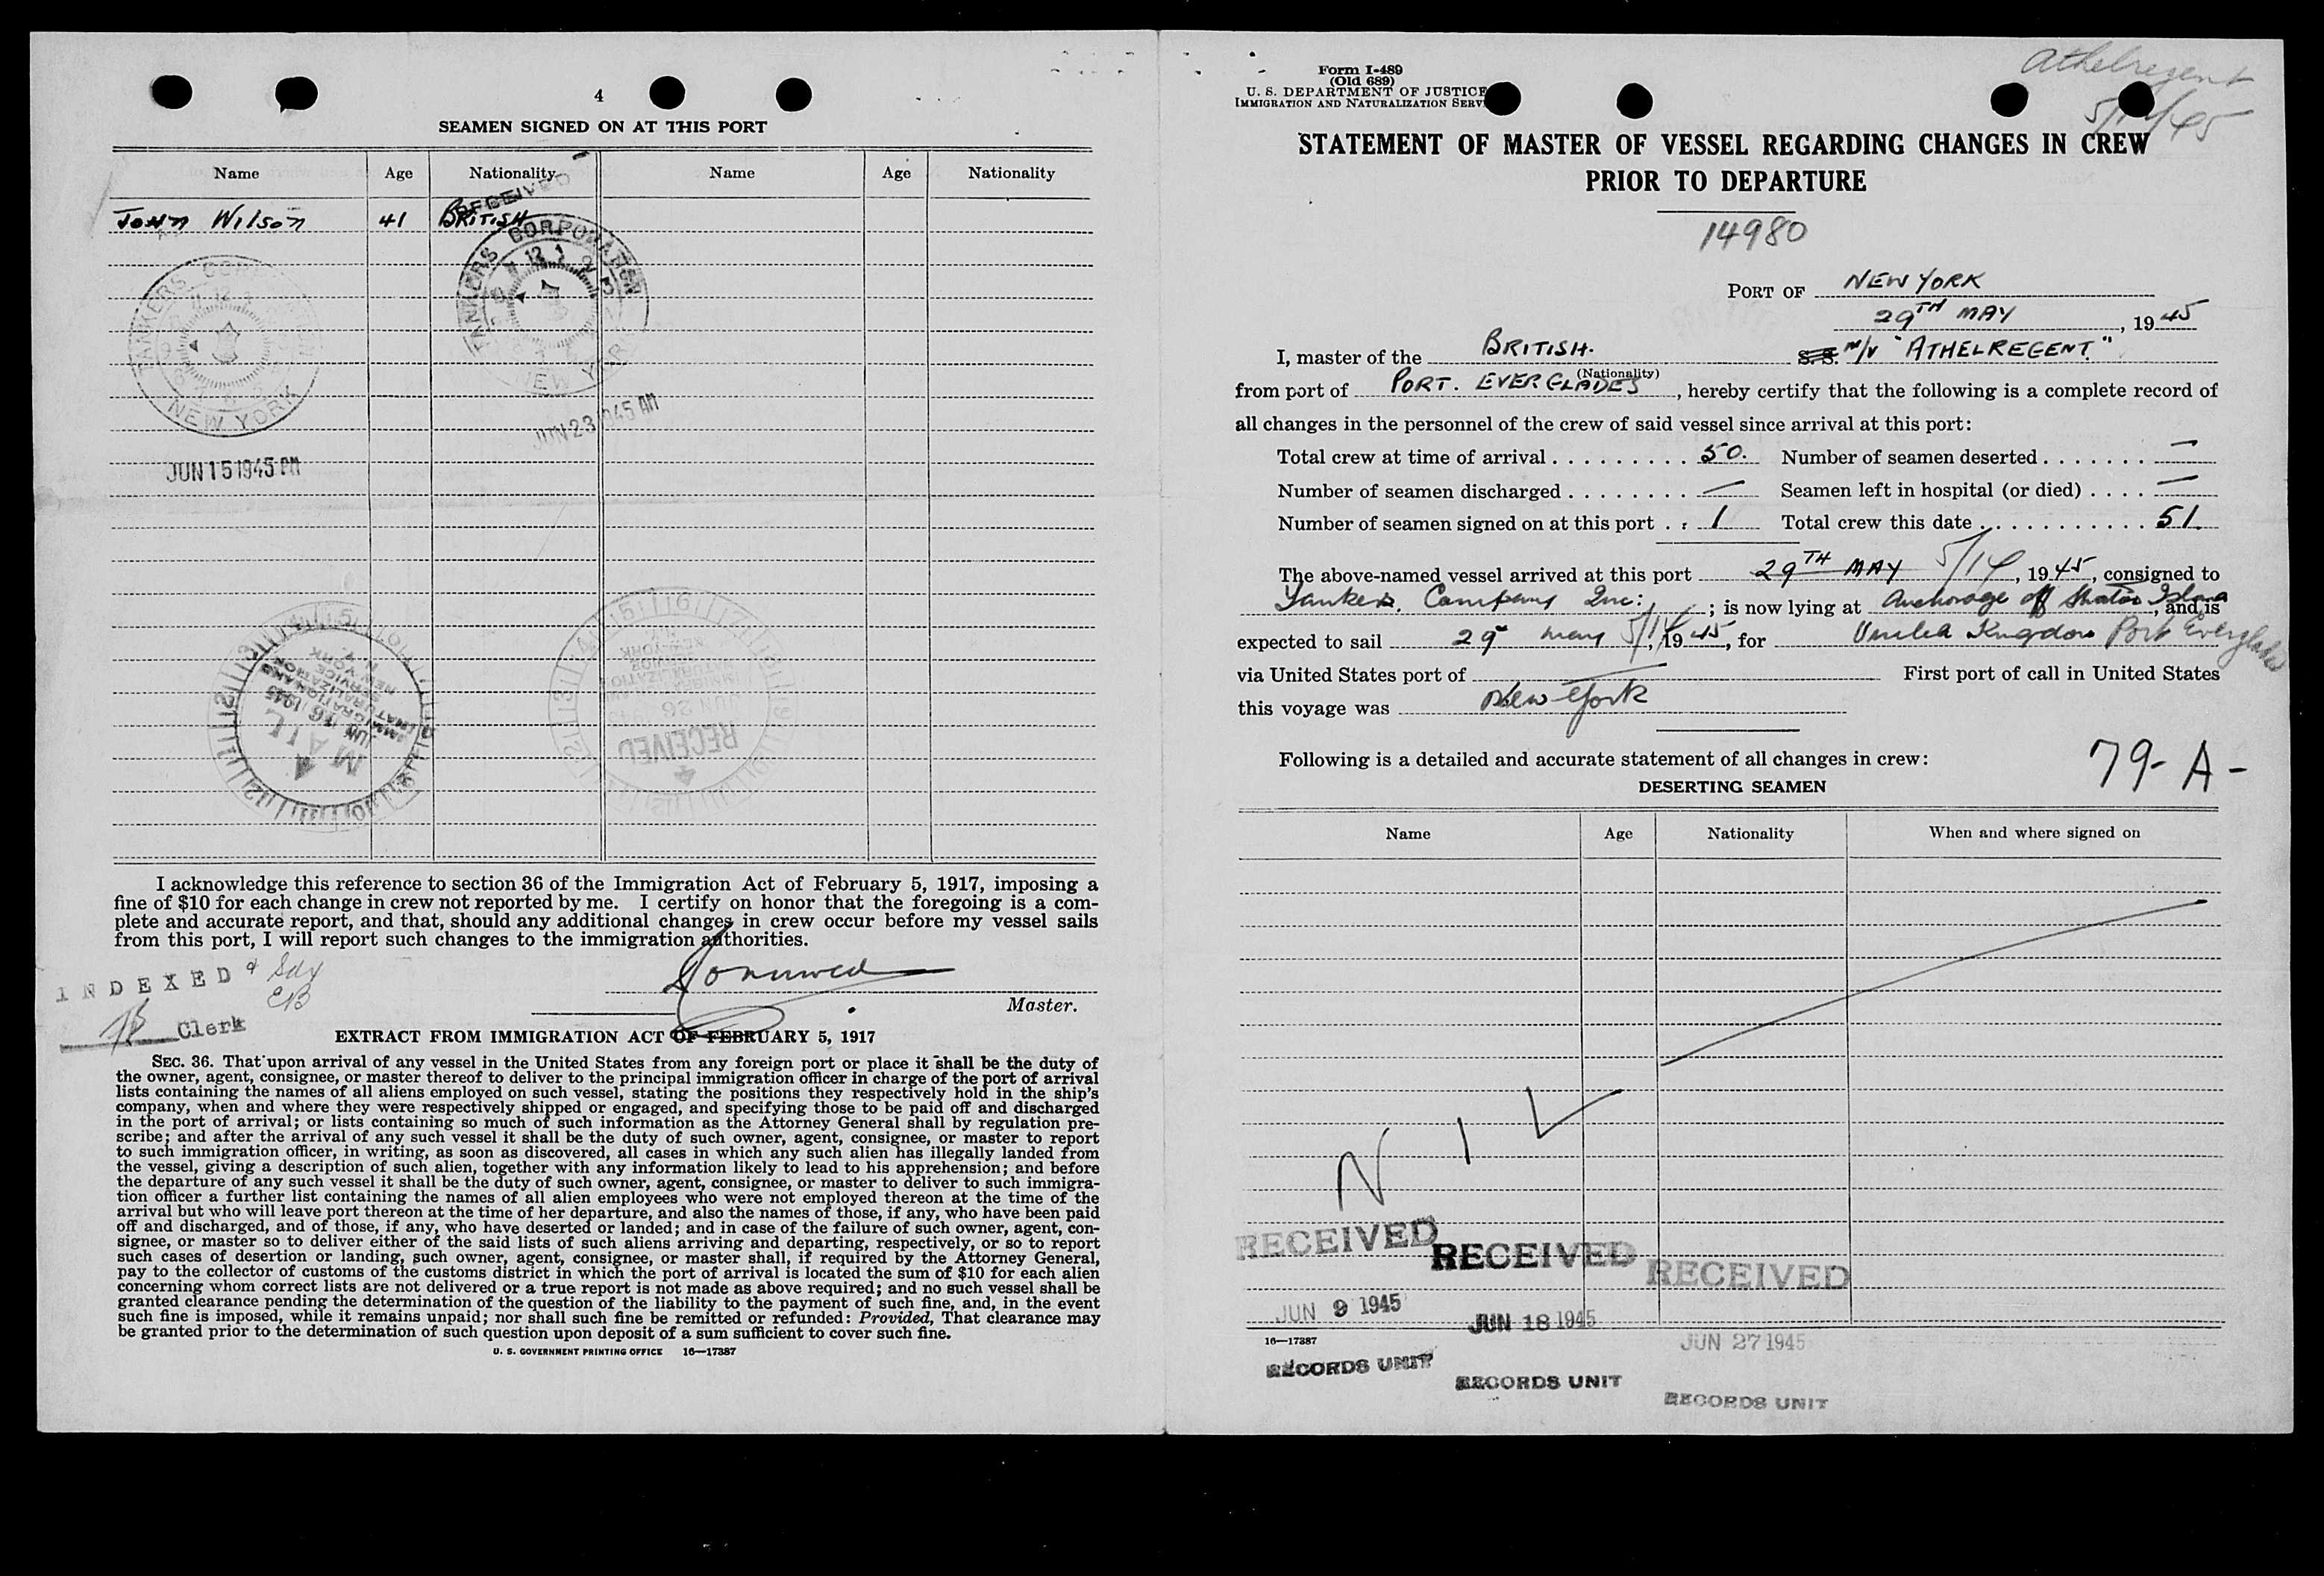 4
SEAMEN SIGNED ON AT THIS PORT
Name Age Nationality Name Age Nationality
John Wilson 41 BRITISH
RECEIVED
TANKERS CORPORATION
NEW YORK
JUN 15 1945 PM
TANKERS CORPORATION
NEW YORK
JUN 23 1945 AM
MAIL
JUN 16 1945
IMMIGRATION AND
NATURALIZATION
SERVICE
NEW YORK
N. Y.
RECEIVED
JUN 26
IMMIGRATION AND
NATURALIZATION
SERVICE
NEW YORK
N. Y.
I acknowledge this reference to section 36 of the Immigration Act of February 5, 1917, imposing a
fine of $10 for each change in crew not reported by me. I certify on honor that the foregoing is a com-
plete and accurate report, and that, should any additional changes in crew occur before my vessel sails
from this port, I will report such changes to the immigration authorities.
INDEXED
Clerk
Master.
EXTRACT FROM IMMIGRATION ACT OF FEBRUARY 5, 1917
SEC. 36. That upon arrival of any vessel in the United States from any foreign port or place it shall be the duty of
the owner, agent, consignee, or master thereof to deliver to the principal immigration officer in charge of the port of arrival
lists containing the names of all aliens employed on such vessel, stating the positions they respectively hold in the ship's
company, when and where they were respectively shipped or engaged, and specifying those to be paid off and discharged
in the port of arrival; or lists containing so much of such information as the Attorney General shall by regulation pre-
scribe; and after the arrival of any such vessel it shall be the duty of such owner, agent, consignee, or master to report
to such immigration officer, in writing, as soon as discovered, all cases in which any such alien has illegally landed from
the vessel, giving a description of such alien, together with any information likely to lead to his apprehension; and before
the departure of any such vessel it shall be the duty of such owner, agent, consignee, or master to deliver to such immigra-
tion officer a further list containing the names of all alien employees who were not employed thereon at the time of the
arrival but who will leave port thereon at the time of her departure, and also the names of those, if any, who have been paid
off and discharged, and of those, if any, who have deserted or landed; and in case of the failure of such owner, agent, con-
signee, or master so to deliver either of the said lists of such aliens arriving and departing, respectively, or so to report
such cases of desertion or landing, such owner, agent, consignee, or master shall, if required by the Attorney General,
pay to the collector of customs of the customs district in which the port of arrival is located the sum of $10 for each alien
concerning whom correct lists are not delivered or a true report is not made as above required; and no such vessel shall be
granted clearance pending the determination of the question of the liability to the payment of such fine, and, in the event
such fine is imposed, while it remains unpaid; nor shall such fine be remitted or refunded: Provided, That clearance may
be granted prior to the determination of such question upon deposit of a sum sufficient to cover such fine.
U. S. GOVERNMENT PRINTING OFFICE 16—17387
Athelregent
Form I-489
(Old 689)
U. S. DEPARTMENT OF JUSTICE
IMMIGRATION AND NATURALIZATION SERV
STATEMENT OF MASTER OF VESSEL REGARDING CHANGES IN CREW
PRIOR TO DEPARTURE
14980
PORT OF NEW YORK
29TH MAY, 1945
I, master of the BRITISH. S. S. M/V "ATHELREGENT"
(Nationality)
from port of PORT. EVERGLADES, hereby certify that the following is a complete record of
all changes in the personnel of the crew of said vessel since arrival at this port:
Total crew at time of arrival 50. Number of seamen deserted —
Number of seamen discharged — Seamen left in hospital (or died) —
Number of seamen signed on at this port 1 Total crew this date 51.
The above-named vessel arrived at this port 29TH MAY 5/14, 1945, consigned to
Tankers. Company Inc: ; is now lying at Anchorage off Staten Island, and is
expected to sail 29 May 5/14, 1945, for United Kingdom Port Everglades
via United States port of — First port of call in United States
this voyage was New York
Following is a detailed and accurate statement of all changes in crew:
79-A-
DESERTING SEAMEN
Name Age Nationality When and where signed on
NIL
RECEIVED RECEIVED RECEIVED
JUN 9 1945 JUN 18 1945 JUN 27 1945
16—17387
RECORDS UNIT RECORDS UNIT RECORDS UNIT